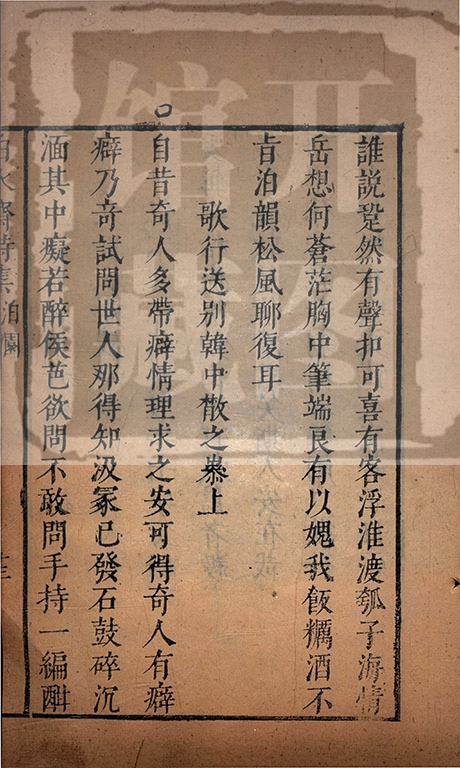 誰説跫然有聲扣可喜有客浮淮渡瓠子海情
岳想何蒼茫胸中筆端良有以媿我飯糲酒不
㫖泊韻松風聊復耳
歌行送别韓中散之㬥上
自昔奇人多帶癖情理求之安可得奇人有癖
癖乃奇試問世人那得知汲冢已發石鼓碎沉
涵其中癡若醉侯芭欲問不敢問手持一編酣
白水齋詩集 泊園